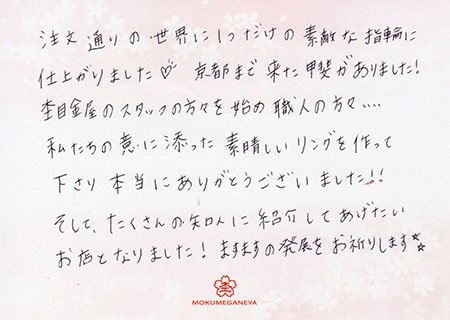 注文通りの世界に1つだけの素敵な指輪に
仕上がりました♡ 京都まで来た甲斐がありました!
杢目金屋のスタッフの方々を始め職人の方々....
私たちの意に添った素晴しいリングを作って
下さり本当にありがとうございました!!
そして、たくさんの知人に紹介してあげたい
お店となりました!ますますの発展をお祈りします☆☆
MOKUMEGANEYA